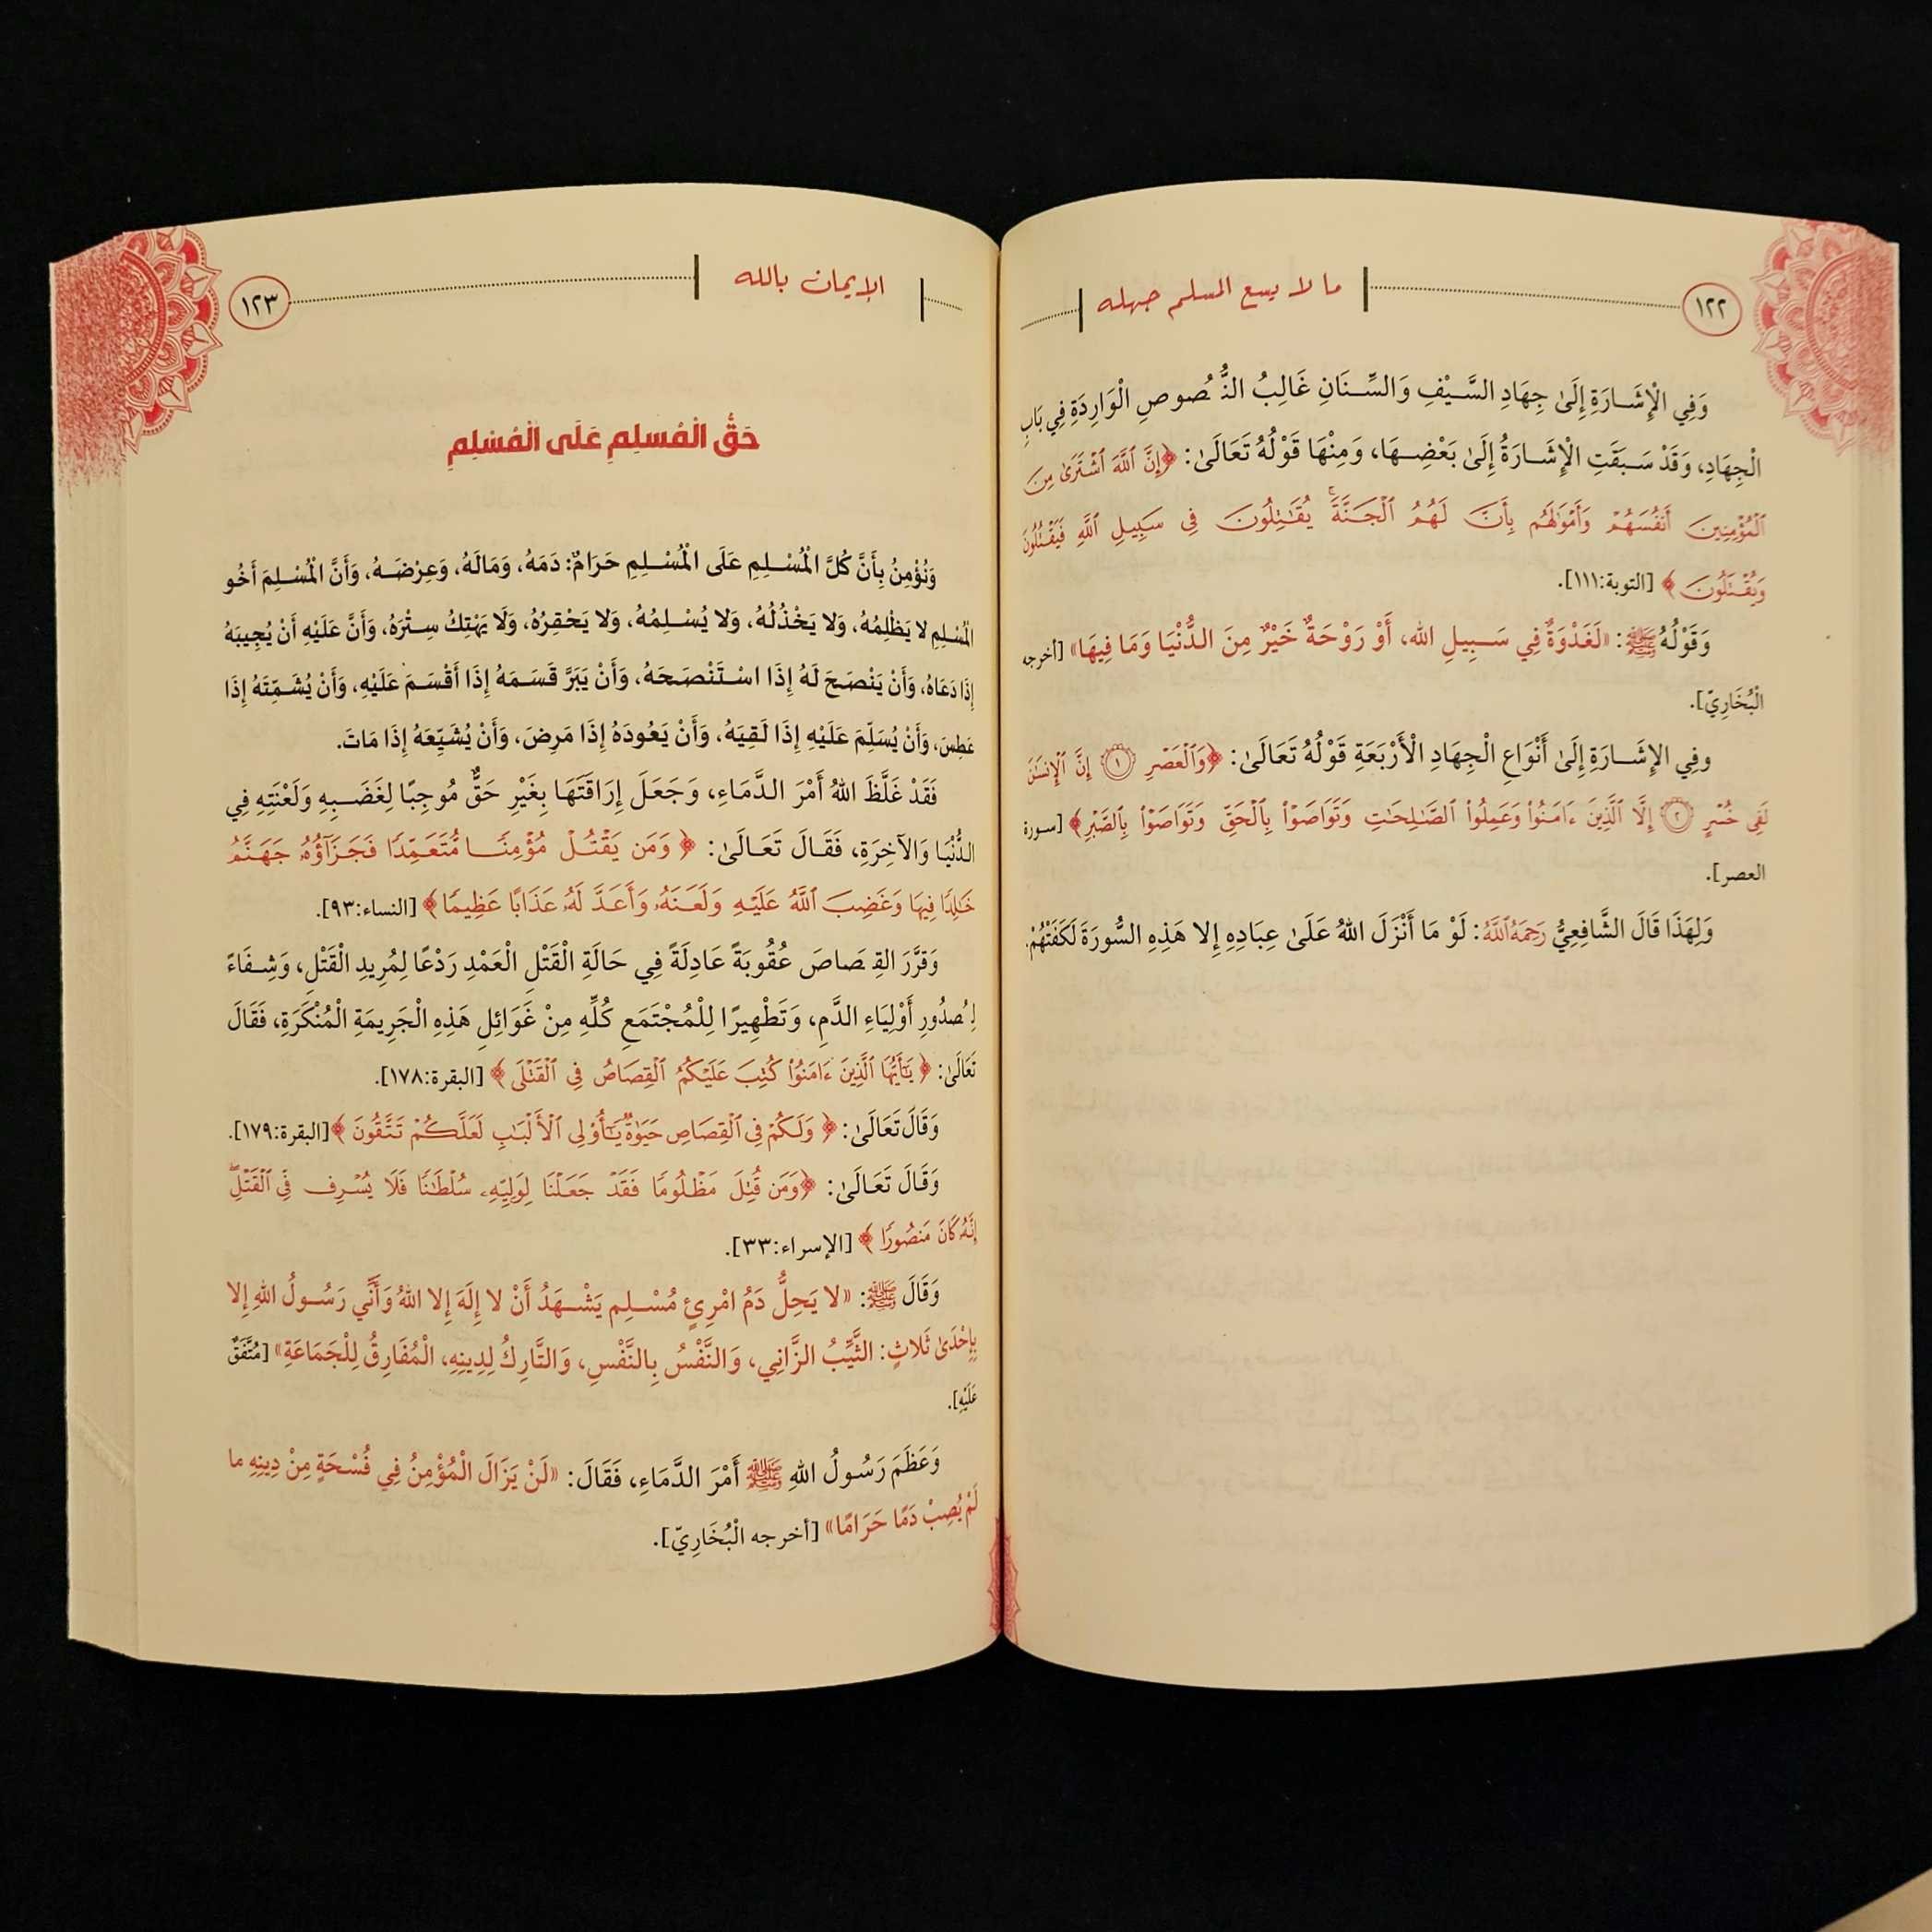 ما لا يسع المسلم جهله
١٢٢
وَفِي الْإِشَارَةِ إِلَىٰ جِهَادِ السَّيْفِ وَالسِّنَانِ غَالِبُ النُّصُوصِ الْوَارِدَةِ فِي بَابِ
الْجِهَادِ، وَقَدْ سَبَقَتِ الْإِشَارَةُ إِلَىٰ بَعْضِهَا، وَمِنْهَا قَوْلُهُ تَعَالَىٰ: ﴿إِنَّ ٱللَّهَ ٱشْتَرَىٰ مِنَ
ٱلْمُؤْمِنِينَ أَنفُسَهُمْ وَأَمْوَٰلَهُم بِأَنَّ لَهُمُ ٱلْجَنَّةَ ۚ يُقَٰتِلُونَ فِي سَبِيلِ ٱللَّهِ فَيَقْتُلُونَ
وَيُقْتَلُونَ﴾ [التوبة:١١١].
وَقَوْلُهُ ﷺ: «لَغَدْوَةٌ فِي سَبِيلِ الله، أَوْ رَوْحَةٌ خَيْرٌ مِنَ الدُّنْيَا وَمَا فِيهَا» [أخرجه
الْبُخَارِيّ].
وفِي الإِشَارَةِ إِلَىٰ أَنْوَاعِ الْجِهَادِ الْأَرْبَعَةِ قَوْلُهُ تَعَالَىٰ: ﴿وَٱلْعَصْرِ ١ إِنَّ ٱلْإِنسَٰنَ
لَفِي خُسْرٍ ٢ إِلَّا ٱلَّذِينَ ءَامَنُوا۟ وَعَمِلُوا۟ ٱلصَّٰلِحَٰتِ وَتَوَاصَوْا۟ بِٱلْحَقِّ وَتَوَاصَوْا۟ بِٱلصَّبْرِ﴾ [سورة
العصر].
وَلِهَذَا قَالَ الشَّافِعِيُّ رَحِمَهُ ٱللَّهُ: لَوْ مَا أَنْزَلَ اللهُ عَلَىٰ عِبَادِهِ إِلا هَذِهِ السُّورَةَ لَكَفَتْهُمْ.
الإيمان بالله
١٢٣
حَقُّ الْمُسلِمِ عَلَى الْمُسْلِمِ
وَنُؤْمِنُ بِأَنَّ كُلَّ الْمُسْلِمِ عَلَى الْمُسْلِمِ حَرَامٌ: دَمَهُ، وَمَالَهُ، وَعِرْضَهُ، وَأَنَّ الْمُسْلِمَ أَخُو
الْمُسْلِمِ لا يَظْلِمُهُ، وَلا يَخْذُلُهُ، وَلا يُسْلِمُهُ، وَلا يَحْقِرُهُ، وَلَا يَهْتِكُ سِتْرَهُ، وَأَنَّ عَلَيْهِ أَنْ يُجِيبَهُ
إِذَا دَعَاهُ، وَأَنْ يَنْصَحَ لَهُ إِذَا اسْتَنْصَحَهُ، وَأَنْ يَبَرَّ قَسَمَهُ إِذَا أَقْسَمَ عَلَيْهِ، وَأَنْ يُشَمِّتَهُ إِذَا
عَطِسَ، وَأَنْ يُسَلِّمَ عَلَيْهِ إِذَا لَقِيَهُ، وَأَنْ يَعُودَهُ إِذَا مَرِضَ، وَأَنْ يُشَيِّعَهُ إِذَا مَاتَ.
فَقَدْ غَلَّظَ اللهُ أَمْرَ الدَّمَاءِ، وَجَعَلَ إِرَاقَتَهَا بِغَيْرِ حَقٍّ مُوجِبًا لِغَضَبِهِ وَلَعْنَتِهِ فِي
الدُّنْيَا وَالآخِرَةِ، فَقَالَ تَعَالَىٰ: ﴿وَمَن يَقْتُلْ مُؤْمِنًا مُّتَعَمِّدًا فَجَزَآؤُهُۥ جَهَنَّمُ
خَٰلِدًا فِيهَا وَغَضِبَ ٱللَّهُ عَلَيْهِ وَلَعَنَهُۥ وَأَعَدَّ لَهُۥ عَذَابًا عَظِيمًا﴾ [النساء:٩٣].
وَقَرَّرَ القِصَاصَ عُقُوبَةً عَادِلَةً فِي حَالَةِ الْقَتْلِ الْعَمْدِ رَدْعًا لِمُرِيدِ الْقَتْلِ، وَشِفَاءً
لِصُدُورِ أَوْلِيَاءِ الدَّمِ، وَتَطْهِيرًا لِلْمُجْتَمَعِ كُلِّهِ مِنْ غَوَائِلِ هَذِهِ الْجَرِيمَةِ الْمُنْكَرَةِ، فَقَالَ
تَعَالَىٰ: ﴿يَٰٓأَيُّهَا ٱلَّذِينَ ءَامَنُوا۟ كُتِبَ عَلَيْكُمُ ٱلْقِصَاصُ فِي ٱلْقَتْلَى﴾ [البقرة:١٧٨].
وَقَالَ تَعَالَىٰ: ﴿وَلَكُمْ فِي ٱلْقِصَاصِ حَيَوٰةٌ يَٰٓأُو۟لِي ٱلْأَلْبَٰبِ لَعَلَّكُمْ تَتَّقُونَ﴾ [البقرة:١٧٩].
وَقَالَ تَعَالَىٰ: ﴿وَمَن قُتِلَ مَظْلُومًا فَقَدْ جَعَلْنَا لِوَلِيِّهِۦ سُلْطَٰنًا فَلَا يُسْرِف فِّي ٱلْقَتْلِ ۖ
إِنَّهُۥ كَانَ مَنصُورًا﴾ [الإسراء:٣٣].
وَقَالَ ﷺ: «لا يَحِلُّ دَمُ امْرِئٍ مُسْلِمٍ يَشْهَدُ أَنْ لا إِلَهَ إِلا اللهُ وَأَنَّي رَسُولُ اللهِ إِلا
بِإِحْدَىٰ ثَلاثٍ: الثَّيِّبُ الزَّانِي، وَالنَّفْسُ بِالنَّفْسِ، وَالتَّارِكُ لِدِينِهِ، الْمُفَارِقُ لِلْجَمَاعَةِ» [مُتَّفَقٌ
عَلَيْهِ].
وَعَظَمَ رَسُولُ اللهِ ﷺ أَمْرَ الدَّمَاءِ، فَقَالَ: «لَنْ يَزَالَ الْمُؤْمِنُ فِي فُسْحَةٍ مِنْ دِينِهِ ما
لَمْ يُصِبْ دَمًا حَرَامًا» [أخرجه الْبُخَارِيّ].